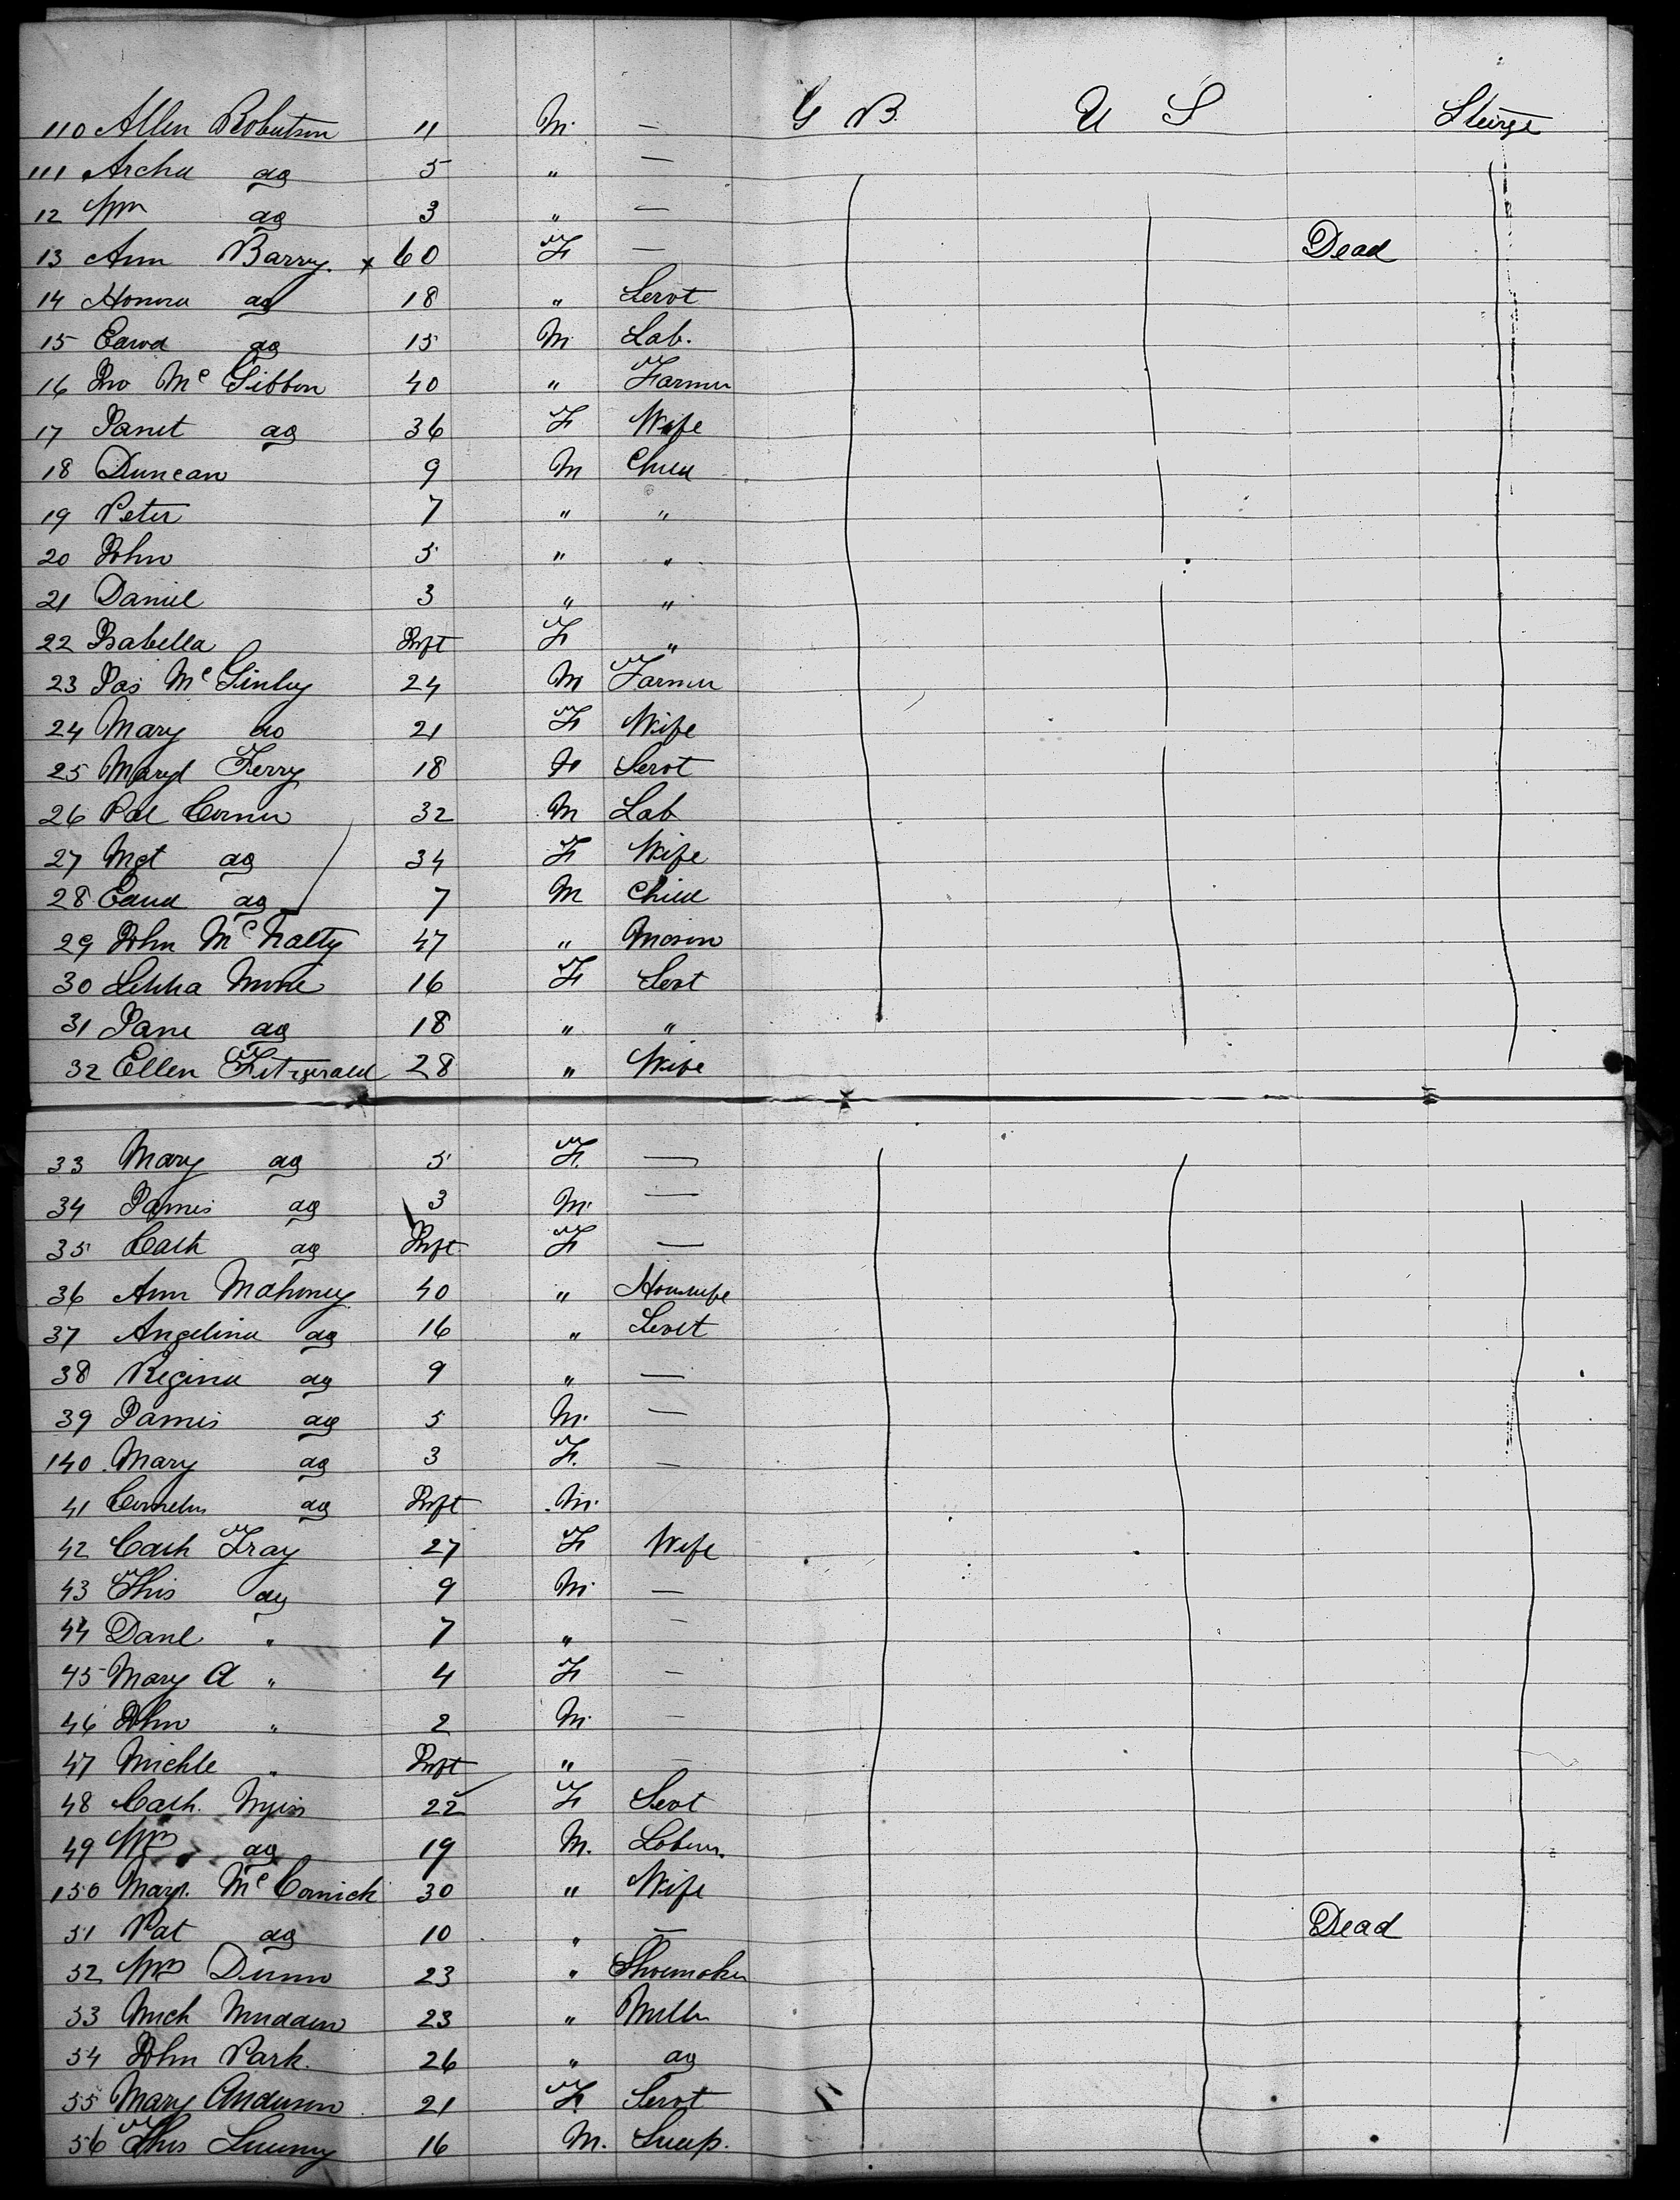 110 Allen Robertson 11 M. — G B. U S Steerge
111 Archd do 5 " —
12 Wm do 3 " —
13 Ann Barry. x 60 F — Dead
14 Honora do 18 " Servt
15 Edwd do 15 M Lab.
16 Jno McGibbon 40 " Farmer
17 Janet do 36 F Wife
18 Duncan 9 M Child
19 Peter 7 " "
20 John 5 " "
21 Daniel 3 " "
22 Isabella Inft F "
23 Jas McGinley 24 M Farmer
24 Mary do 21 F Wife
25 Margt Ferry 18 F Servt
26 Pat Connor 32 M Lab
27 Mgt do 34 F Wife
28 Edwd do 7 M Child
29 John McNalty 47 " Mason
30 16 F Servt
31 Jane do 18 " "
32 Ellen Fitzgerald 28 " Wife
33 Mary do 5 F. —
34 James do 3 M. —
35 Cath do Inft F —
36 Ann Mahoney 40 " Housewife
37 Angelina do 16 " Servt
38 Regina do 9 " —
39 James do 5 M. —
140 Mary do 3 F. —
41 Cornelus do Inft M.
42 Cath Fray 27 F Wife
43 Thos do 9 M. —
44 Danl " 7 " —
45 Mary A " 4 F —
46 John " 2 M. —
47 Michle " Inft " —
48 Cath. 22 F Servt
49 Wm do 19 M. Labour.
150 Margt. McCormick 30 " Wife
51 Pat do 10 " — Dead
52 Wm Dunn 23 " Shoemaker
53 Mich Madden 23 " Miller
54 John Park. 26 " do
55 Mary Anderson 21 F. Servt
56 Thos 16 M.